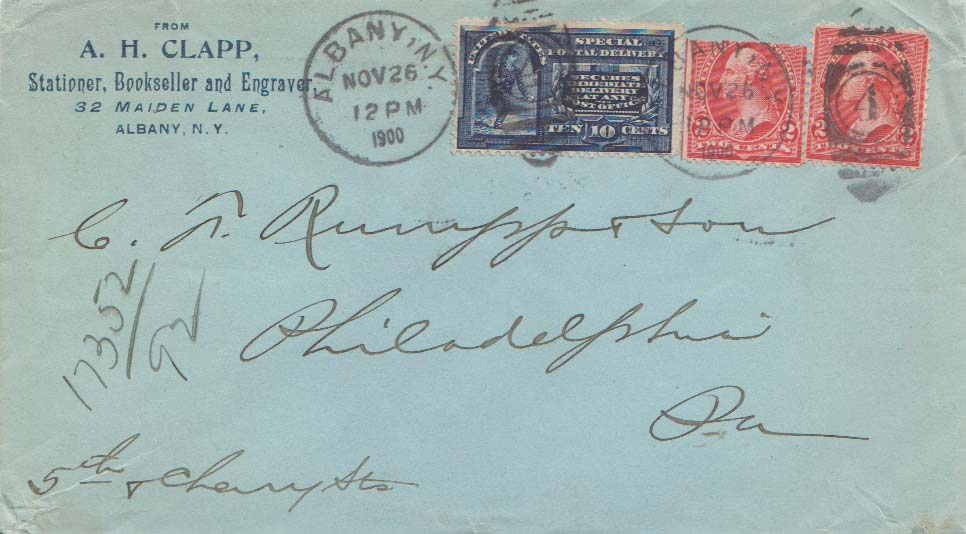 FROM
A. H. CLAPP,
Stationer, Bookseller and Engraver
32 MAIDEN LANE,
ALBANY, N. Y.
ALBANY, N.Y.
NOV 26
12 PM
1900
UNITED STATES
SPECIAL
POSTAL DELIVERY
SECURES
IMMEDIATE
DELIVERY
AT ANY
POST OFFICE
TEN 10 CENTS
ALBANY, N.Y.
NOV 26
12 PM
1900
2 2
TWO CENTS
1
2 2
TWO CENTS
C. F. Rumpp & Son
Philadelphia
Pa
5th & Cherry Sts
17352/92